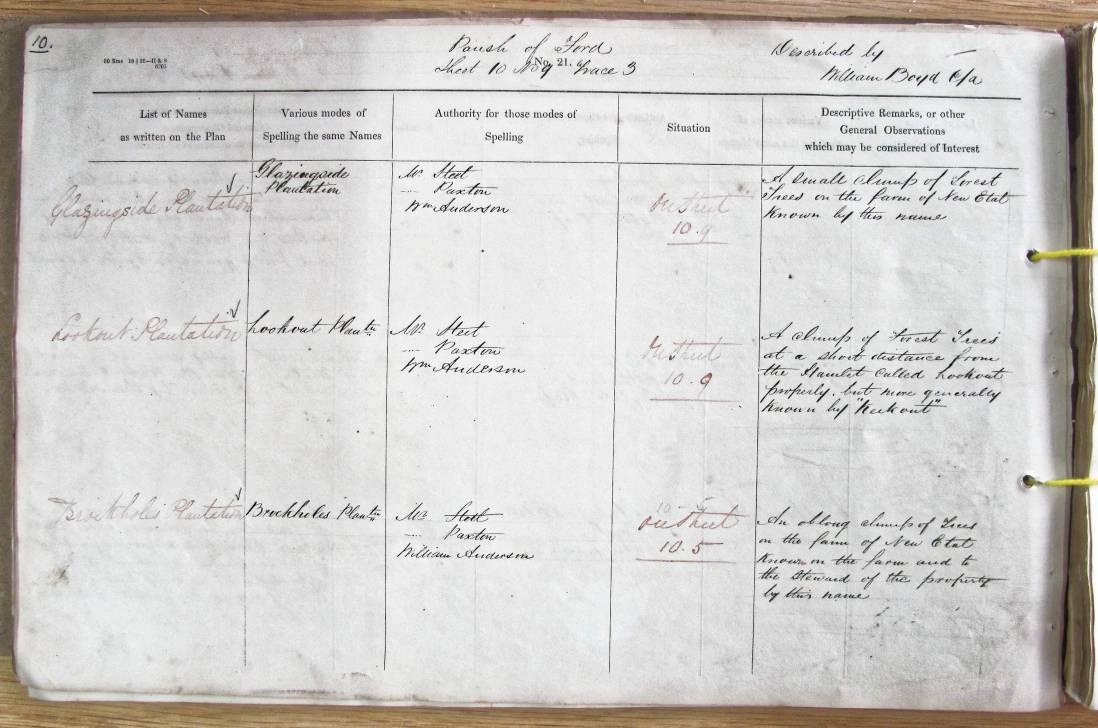 10.
Parish of Ford
No. 21.
Sheet 10 No 9 Trace 3
Described by
William Boyd C/a
List of Names
as written on the Plan
Various modes of
Spelling the same Names
Authority for those modes of
Spelling
Situation
Descriptive Remarks, or other
General Observations
which may be considered of Interest
Glazingside Plantation
Glazingside
Plantation
Mr Steet
" Paxton
Wm Anderson
On Sheet
10.9
A small clump of Forest
Trees on the farm of New Etal
Known by this name
Lookout Plantation
Lookout Plantn
Mr Steet
" Paxton
Wm Anderson
On Sheet
10.9
A clump of Forest Trees
at a short distance from
the Hamlet called Lookout
properly, but more generally
known by "Keekout"
Brockholes Plantation
Brockholes Plantn
Mr Steet
" Paxton
William Anderson
On Sheet
10.5
An oblong clump of Trees
on the farm of New Etal
Known on the farm and to
the Steward of the property
by this name